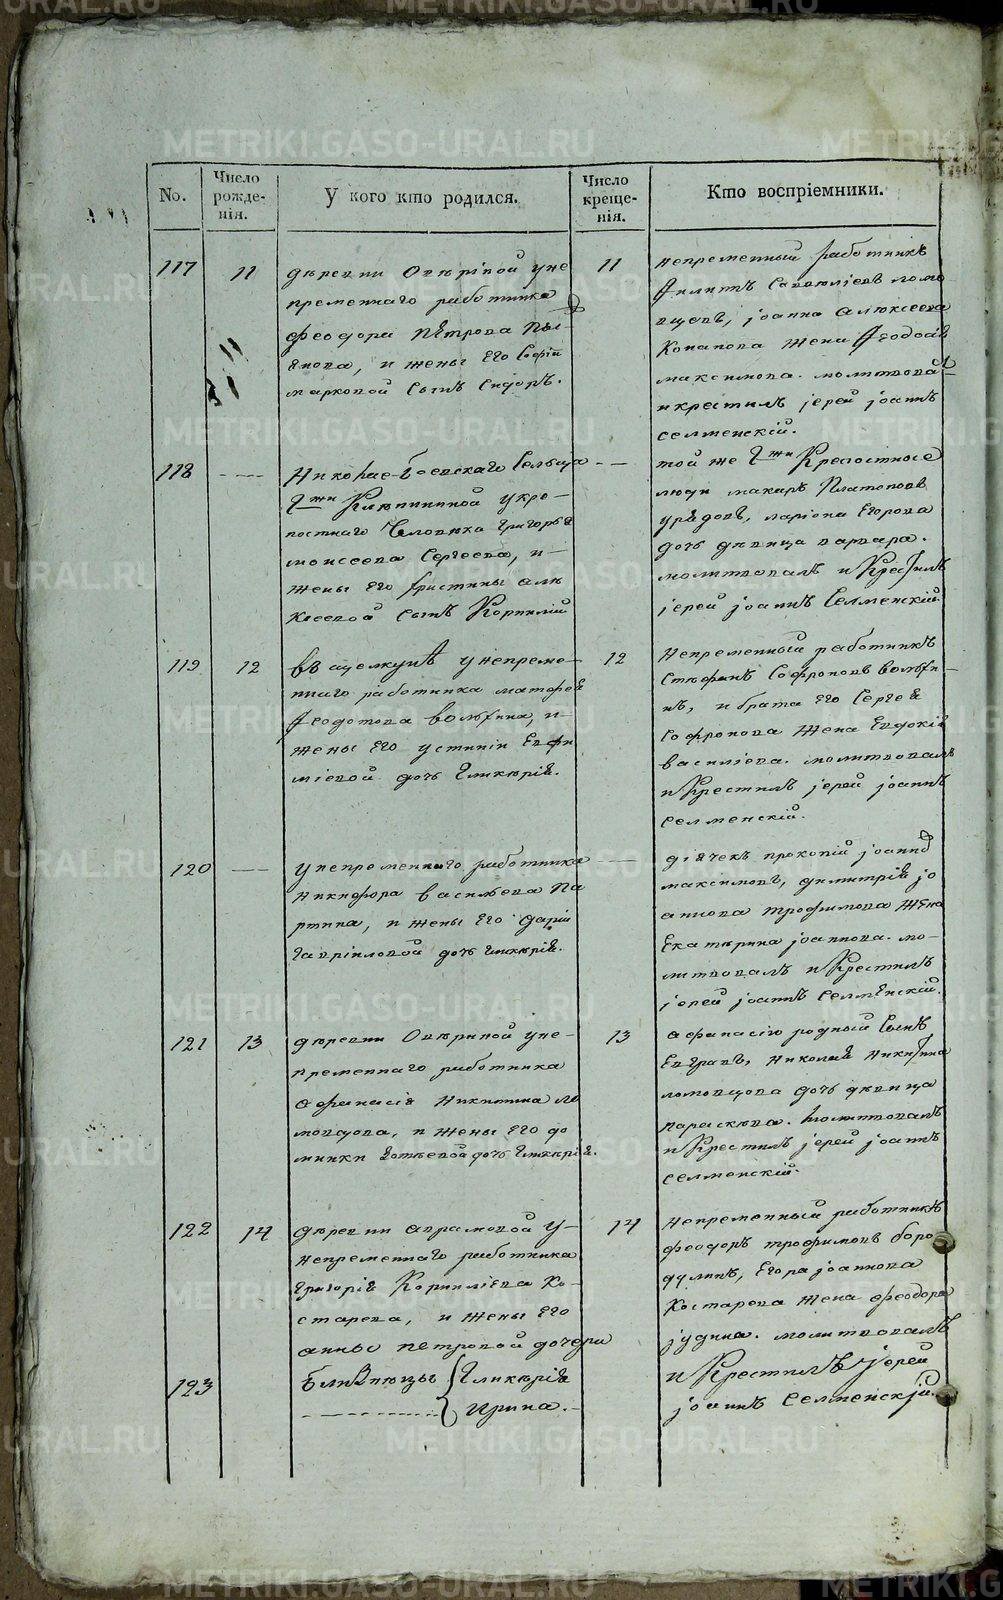 METRIKI.GASO-URAL.RU
No.
Число
рожде-
нія.
У кого кто родился.
Число
креще-
нія.
Кто воспріемники.
117
11
деревни Оверіной у не
пременнаго работника
феодора петрова
и жены его Софіи
марковой сынъ Сидоръ.
11
непременный работникъ
Филипъ
іоанна алексеева
Конапова жена Феодосія
максимова. молитвовал
и крестилъ іерей іоаннъ
селменскій.
118
Николае-боевскаго Сельца
Гжи Клепининой у кре-
постнаго человека григорья
моисеева Сергеева, и
жены его христины але
ксеевой сынъ Корнилий
той же Гжи Крепостные
люди макаръ Платоновъ
ларіона Егорова
дочь девица варвара.
молитвовалъ и крестилъ
іерей іоаннъ Селменскій.
119
12
въ ащелкунѣ у непреме-
ннаго работника матфея
Феодотова волыхина, и
жены его устиніи Евфи
міевой дочь гликерія.
12
Непременный работникъ
Стефанъ Софроновъ волыхи-
нъ, и брата его Сергея
Софронова жена Евдокія
василіева. молитвовалъ
и крестилъ іерей іоаннъ
селменскій.
120
у непременнаго работника
никифора васильева Па
ртина, и жены его дарьи
гавріиловой дочь гликерія.
діячекъ прокопій іоанно
максимовъ, димитрія іо
аннова трофимова жена
Екатерина іоаннова. мо-
литвовалъ и крестилъ
іерей іоаннъ селменскій.
121
13
деревни Оверіной у не-
пременнаго работника
афанасія никитина ло
мовцова, и жены его до
мники фотьевой дочь гликерія.
13
афанасію родный сынъ
Евграфъ, николая никитина
ломовцова дочь девица
параскева. молитвовалъ
и крестилъ іерей іоаннъ
селменскій.
122
14
деревни аврамовой у
непременнаго работника
григорія Корниліева Ко-
старева, и жены его
анны петровой дочери
14
непременный работникъ
феодоръ трофимовъ боро
дулинъ, Егора іоаннова
Костарева жена феодора
іудина. молитвовалъ
и крестилъ іерей
іоаннъ Селменскій.
123
близнецы { гликерія
ирина.